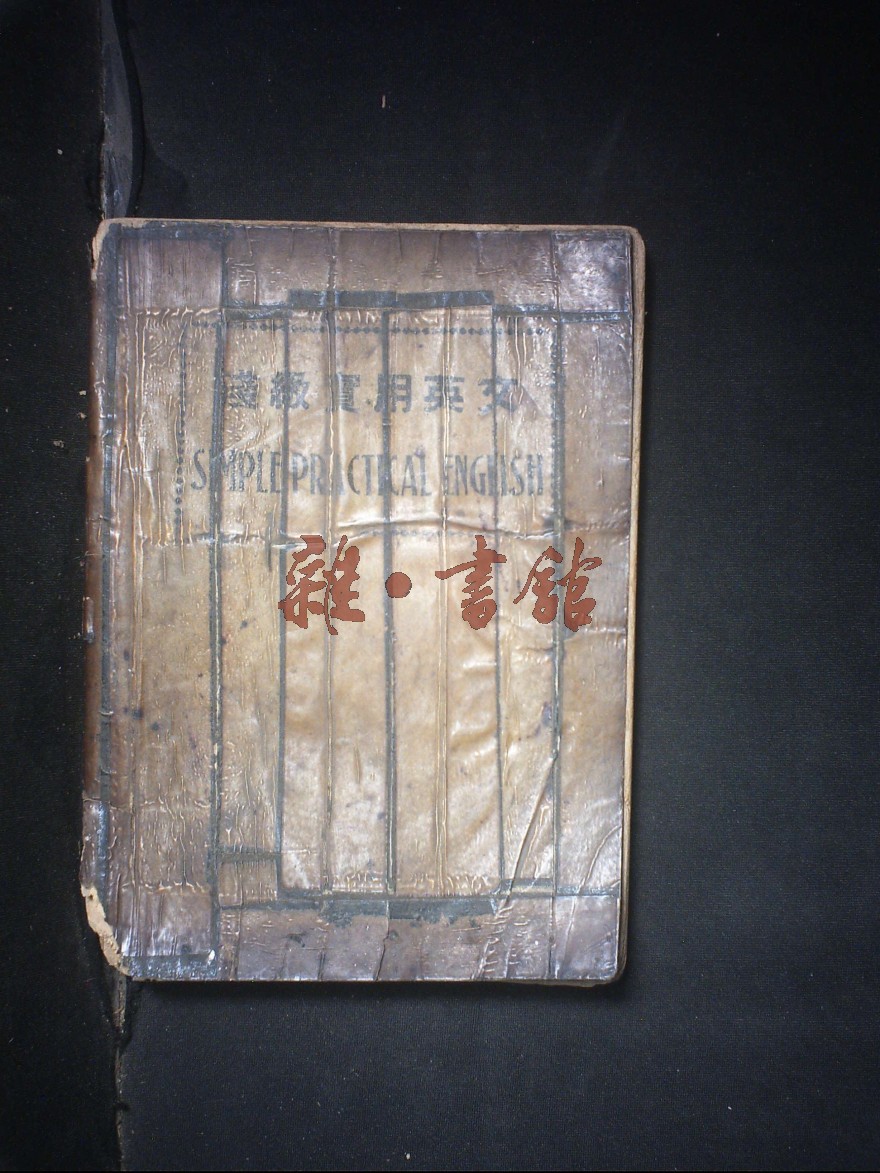 淺級實用英文
SIMPLE PRACTICAL ENGLISH
雜·書館